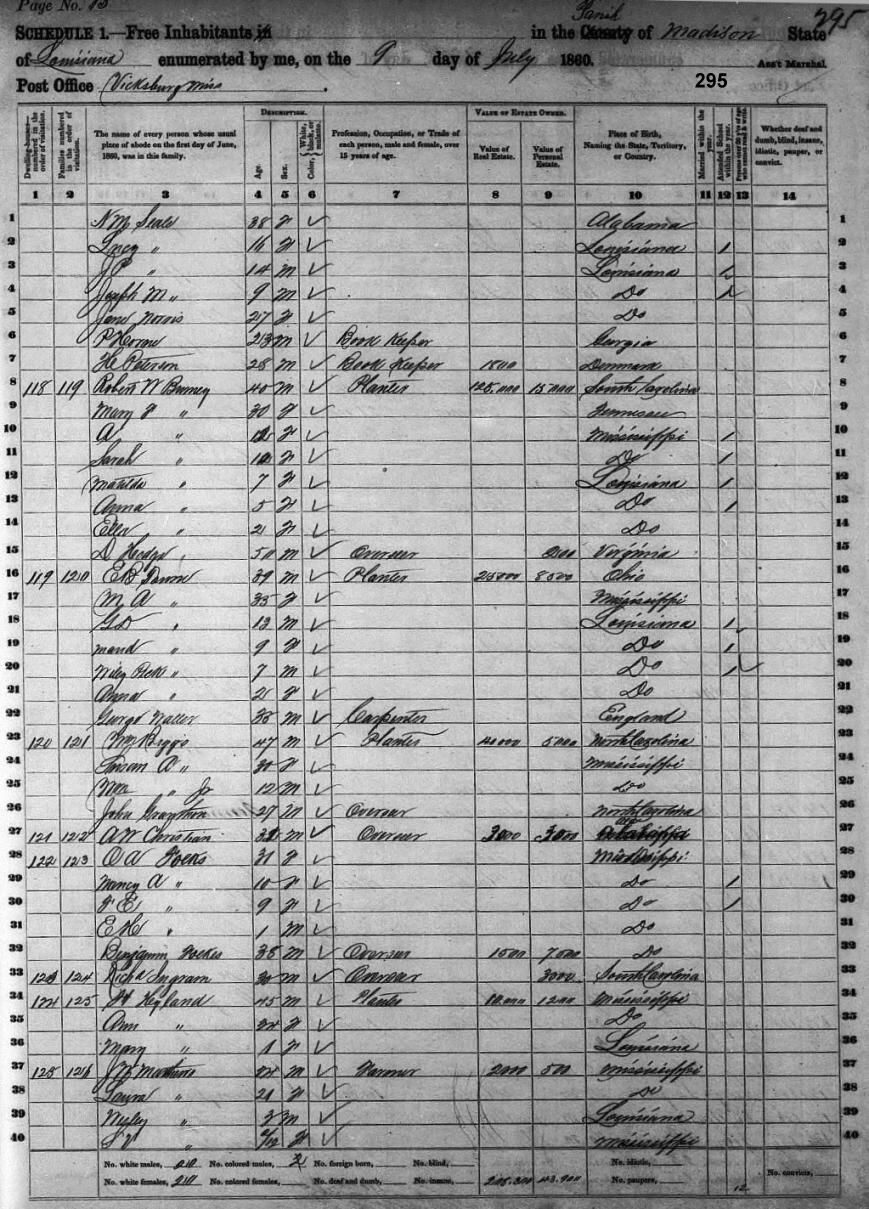 Page No. 13
295
SCHEDULE 1.—Free Inhabitants in in the Parish County of Madison State
of Louisiana enumerated by me, on the 9 day of July 1860. Ass't Marshal.
Post Office Vicksburg Miss
295
DESCRIPTION. VALUE OF ESTATE OWNED.
Dwelling-houses—numbered in the order of visitation. Families numbered in the order of visitation. The name of every person whose usual place of abode on the first day of June, 1860, was in this family. Age. Sex. Color, White, black, or mulatto. Profession, Occupation, or Trade of each person, male and female, over 15 years of age. Value of Real Estate. Value of Personal Estate. Place of Birth, Naming the State, Territory, or Country. Married within the year. Attended School within the year. Persons over 20 y'rs of age who cannot read & write. Whether deaf and dumb, blind, insane, idiotic, pauper, or convict.
1 2 3 4 5 6 7 8 9 10 11 12 13 14
1 N M Seale 38 f ✓ Alabama 1
2 Lucy " 16 f ✓ Louisiana 1 2
3 J P " 14 m ✓ Louisiana 1 3
4 Joseph M " 9 m ✓ Do 1 4
5 Jane Norris 27 f ✓ Do 5
6 P Horne 23 m ✓ Book Keeper Georgia 6
7 H Peterson 28 m ✓ Book Keeper 1500 Denmark 7
8 118 119 Robert W Burney 40 m ✓ Planter 125.000 15000 South Carolina 8
9 Mary F " 30 f ✓ Tennessee 9
10 A " f ✓ Mississippi 1 10
11 Sarah " f ✓ Do 1 11
12 Matilda " 7 f ✓ Louisiana 1 12
13 Anna " 5 f ✓ Do 1 13
14 Ella " 2 f ✓ Do 14
15 D Hedge 50 m ✓ Overseer Virginia 15
16 119 120 E B 39 m ✓ Planter 25000 8500 Ohio 16
17 M A " 35 f ✓ Mississippi 17
18 G D " 13 m ✓ Louisiana 1 18
19 Maud " 9 f ✓ Do 1 19
20 Wiley " 7 m ✓ Do 1 ✓ 20
21 Anna " 2 f ✓ Do 21
22 George Waller 38 m ✓ Carpenter England 22
23 120 121 Wm Biggs 47 m ✓ Planter 40000 5000 North Carolina 23
24 Susan A " 30 f ✓ Mississippi 24
25 Wm " Jr 12 m ✓ Do 25
26 John 27 m ✓ Overseer North Carolina 26
27 121 122 A W Christian m ✓ Overseer 3000 3000 27
28 122 123 O A 31 f ✓ Mississippi 28
29 Nancy A " 10 f ✓ Do 1 29
30 F E " 9 f ✓ Do 1 30
31 E H " 1 m ✓ Do 31
32 Benjamin 38 m ✓ Overseer 1500 7000 Do 32
33 123 124 Richd Ingram 30 m ✓ Overseer 3000 South Carolina 33
34 124 125 Hyland 45 m ✓ Planter 10.000 1200 Mississippi 34
35 Ann " 24 f ✓ Do 35
36 Mary " 1 f ✓ Louisiana 36
37 125 126 J W 24 m ✓ Farmer 2000 500 Mississippi 37
38 Laura " 21 f ✓ Do 38
39 Wesley " 3 m ✓ Louisiana 39
40 " f ✓ Mississippi 40
No. white males, 20 No. colored males, No. foreign born, No. blind, No. idiotic, No. convicts,
No. white females, 20 No. colored females, No. deaf and dumb, No. insane, No. paupers, 12